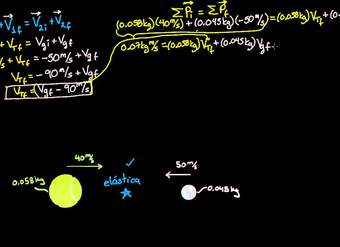 +V⃗₂f = V⃗₂i + V⃗₂f
+ V_Tf = V_gi + V_gf
/s + V_Tf = -50 m/s + V_gf
V_Tf = -90 m/s + V_gf
V_Tf = (V_gf - 90 m/s)
ΣP⃗i = ΣP⃗f
(0.058kg)(40m/s) + (0.045kg)(-50m/s) = (0.058kg)V_Tf + (0.
0.07kg m/s = (0.058kg)V_Tf + (0.045kg)V_gf
40 m/s
50 m/s
0.058kg
elástica
0.045kg